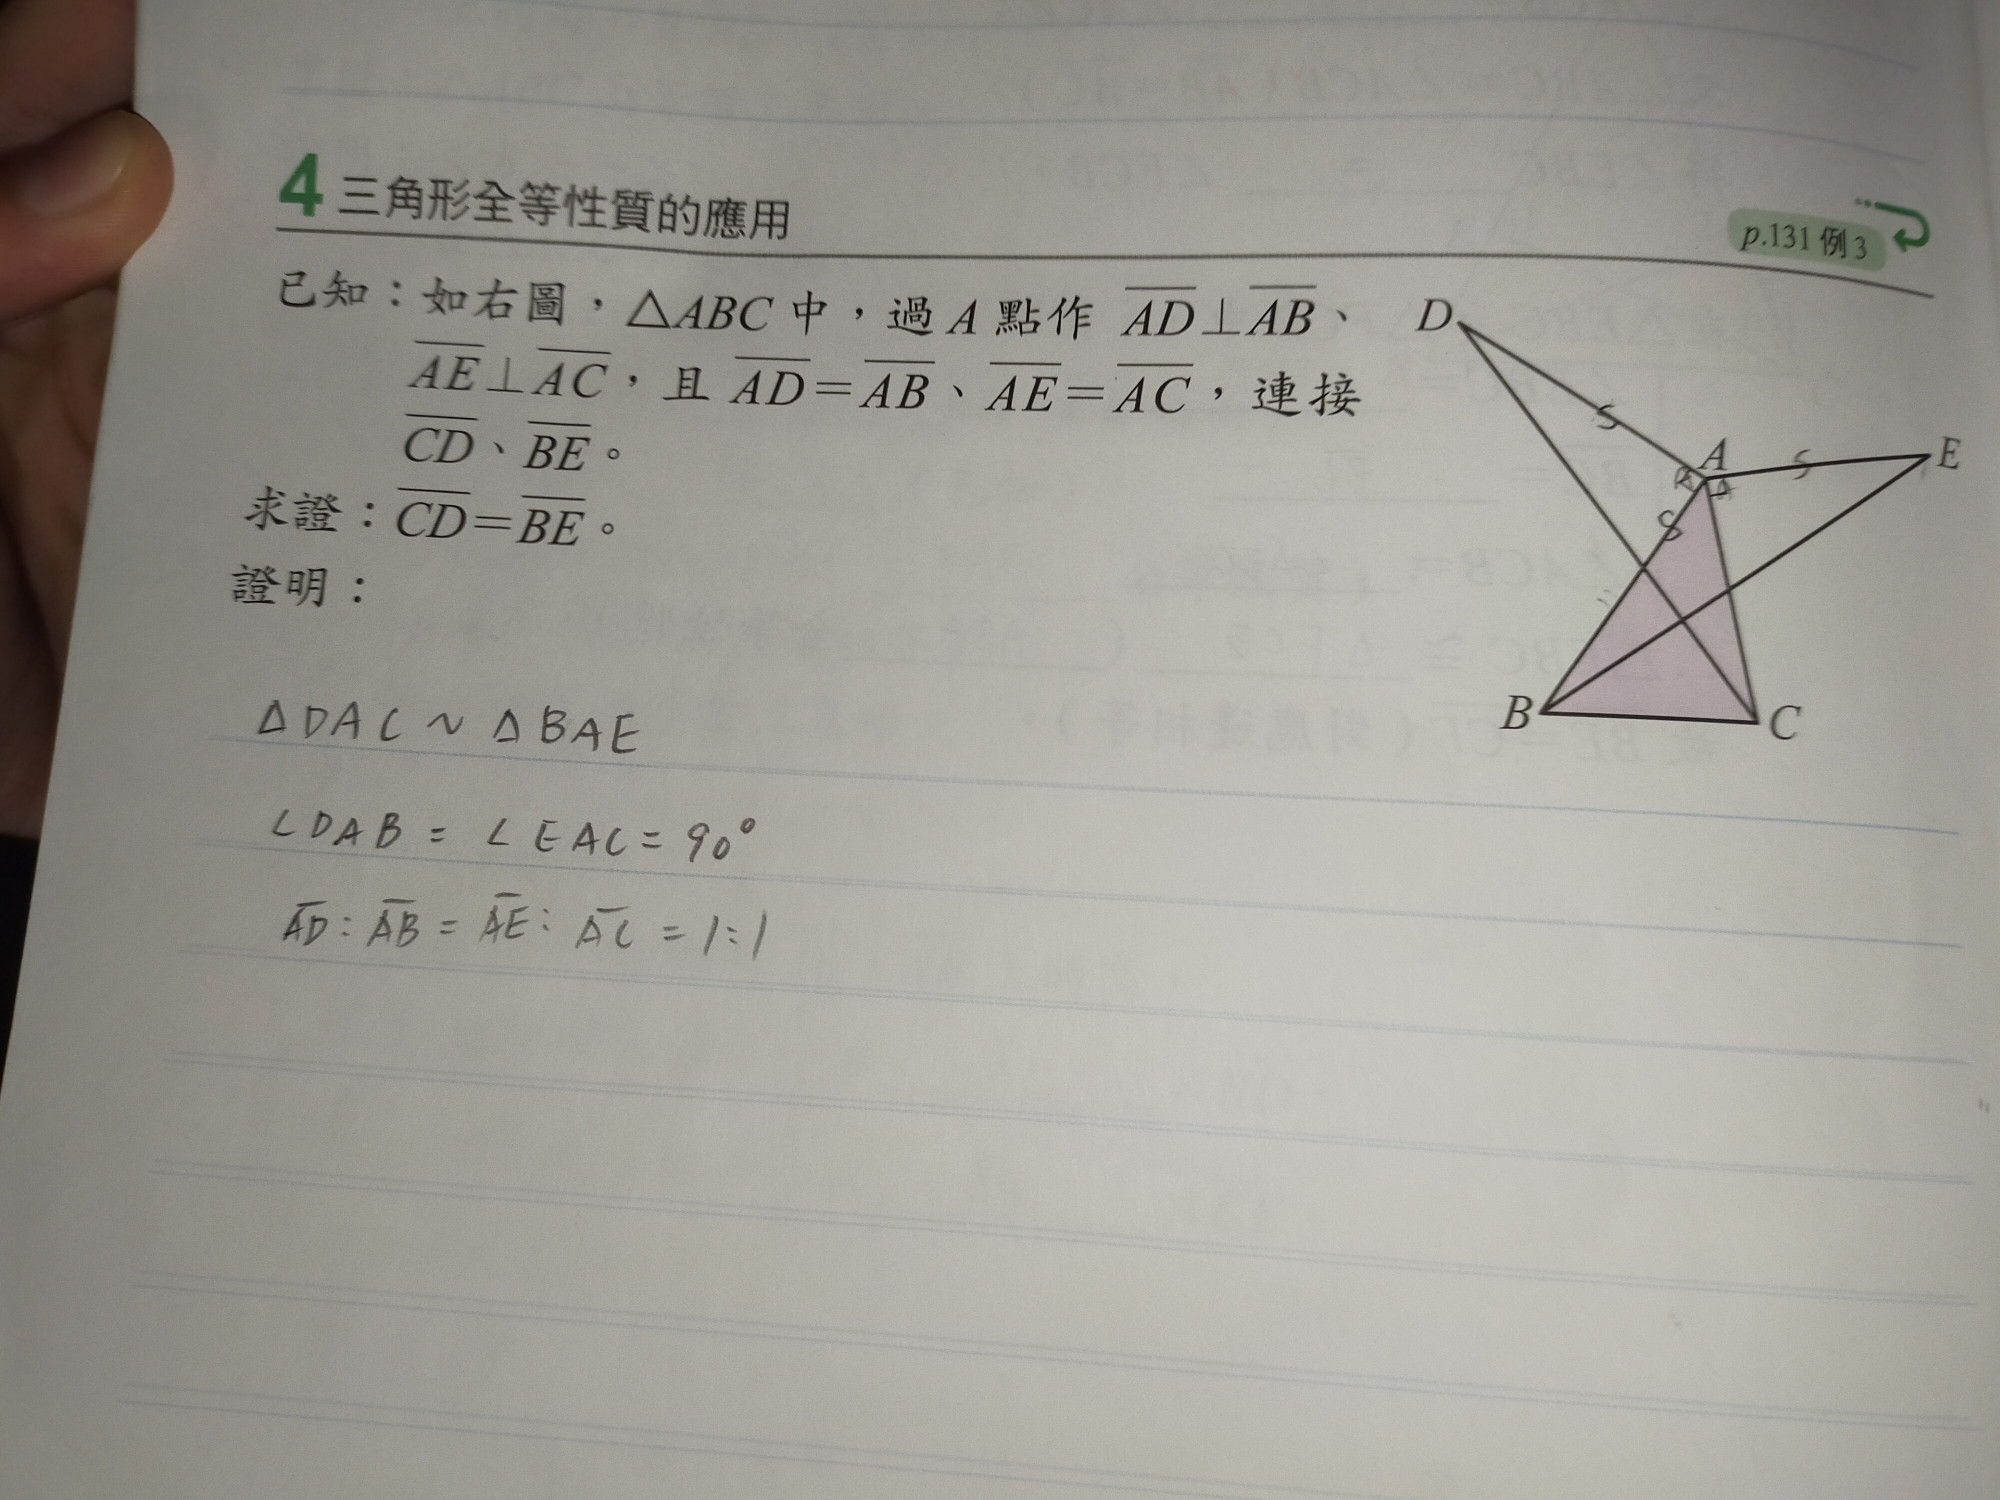 4 三角形全等性質的應用
p.131 例3
已知：如右圖，△ABC 中，過 A 點作 AD⊥AB、
AE⊥AC，且 AD=AB、AE=AC，連接
CD、BE。
求證：CD=BE。
證明：
D
S
A
S
E
S
B
C
△DAC ~ △BAE
∠DAB = ∠EAC = 90°
AD : AB = AE : AC = 1:1